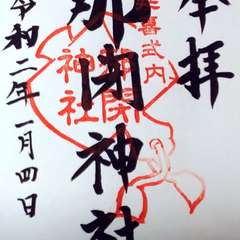 奉拝
延喜式内
那閇神社
那閇神社
令和二年一月四日